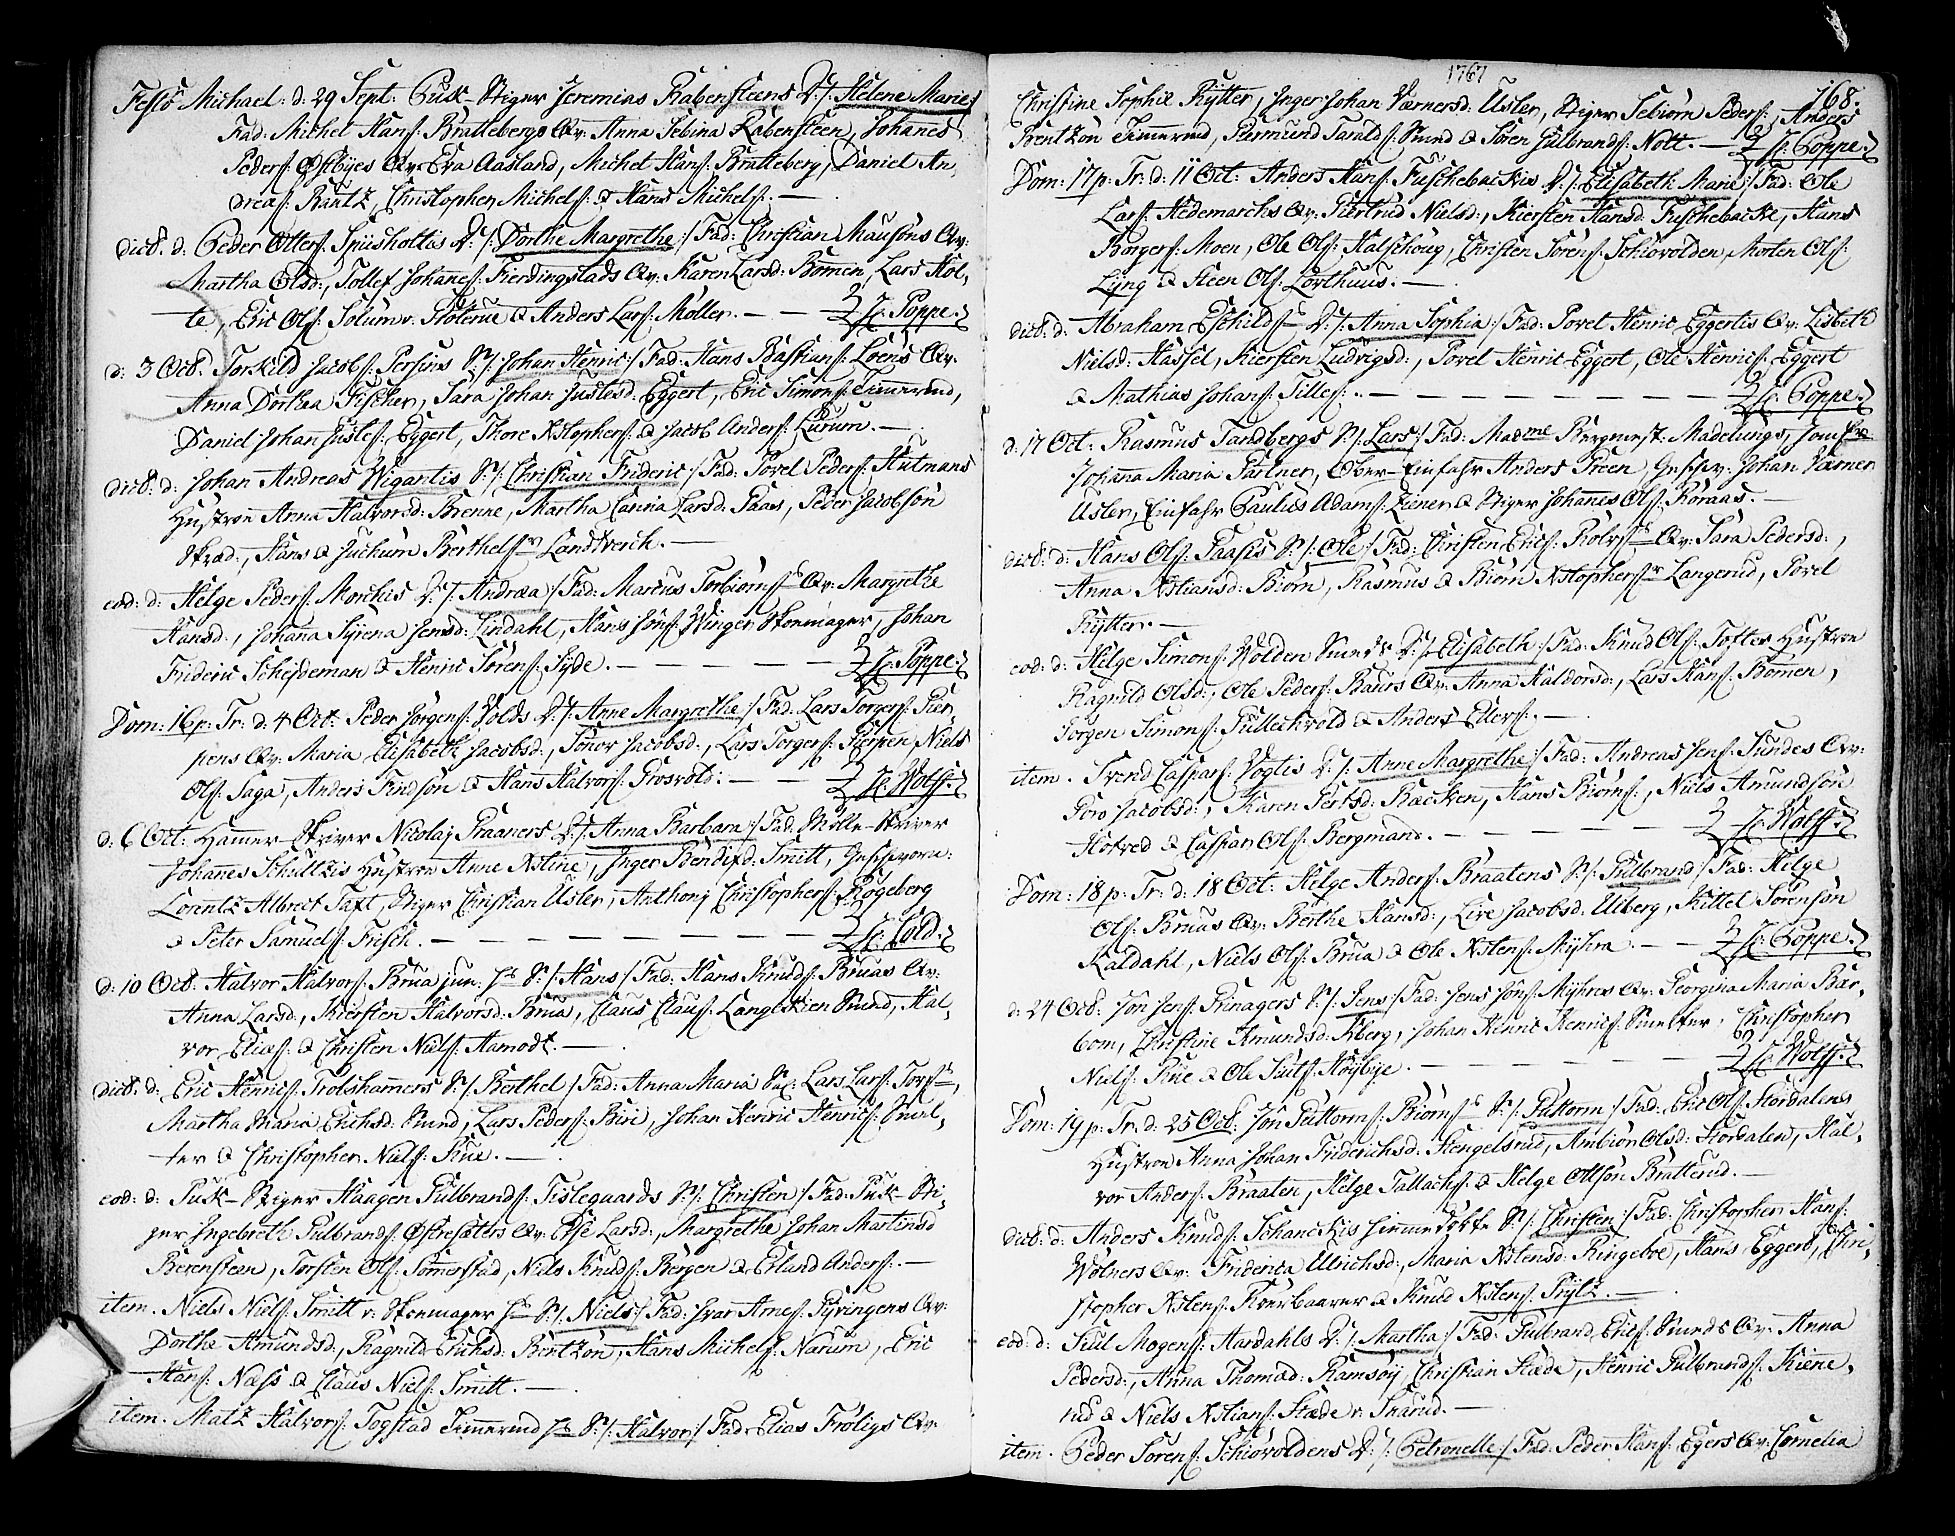 Festo Michael: d: 29 Sept: Puk-Stiger Jeremias Rabensteens D:/: Helene Marie:/
Fad: Michel Hans: Brattebergs Qv: Anna Sebina Rabensteen, Johanes
Peders: Østbyes Qv: Eva Aasland, Michel Hans: Bratteberg, Daniel An,
dreas: Rantz, Christopher Michels: & Hans Michels:.—
dict: d: Peder Otters: D:/: Dorthe Margrethe:/ Fad: Christian Mausøns Qv:
Martha Olsd:, Tollef Johanes: Fierdingstads Qv: Karen Larsd: Bømen, Lars Hol,
te, Eric Ols: Solum v: & Anders Lars: Møller. — — Hr: Poppe.
d: 3 Oct: Torkild Jacobs: S:/: Johan Henric:/ Fad: Hans Bastians: Loens Qv:
Anna Dorthea Fischer, Sara Johan Justesd: Eggert, Eric Simons: Timmermd,
Daniel Johan Justes: Eggert, Thore Xstophers: & Jacob Anders: Lurum.—
dict: d: Johan Andreas Wigantis S:/: Christian Frideric:/ Fad: Povel Peders: Hutmans
Hustroe Anna Halvorsd: Brenne, Martha Carina Larsd: Paas, Peder Jacobsøn
Skræd:, Hans & Juchum Berthels: Landtverch.—
eod: d: Helge Peders: Morchis D:/: Andrea:/ Fad: Marcus Torbiørns: Qv: Margrethe
Hansd:, Johana Syrena Jensd: Lindahl, Hans Jøns: Winger Skomager, Johan
Frideric Scheideman & Henric Sørens: Syde.— — — — Hr: Poppe.
Dom: 16 p: Tr: d: 4 Oct: Peder Jørgens: Volds D:/: Anne Margrethe:/ Fad: Lars Torgers: Pær,
pens Qv: Maria Elisabeth Jacobsd:, Tonor Jacobsd:, Lars Torgers: Pærpen, Niels
Ols: Saga, Anders Findsøn & Hans Halvors: Grosvold:— — Hr: Wolff.
d: 6 Oct: Hammer-Skriver Nicolaj Praaners D:/: Anna Barbara:/ Fad: Mølle-Skriver
Johanes Schultzis Hustroe Anne Xstine, Inger Bendixd: Smitt, Geschvorn:
Lorentz Albrect Taxt, Stiger Christian Usler, Anthonj Christophers: Rogeberg
& Peter Samuels: Frisch.— — — — — — Hr: Hold.
d: 10 Oct: Halvor Halvors: Brua jun: hs S:/: Hans:/ Fad: Hans Knuds: Bruas Qv:
Anna Larsd:, Kiersten Halvorsd: Brua, Claus Claus: Langeskien Smed, Hal,
vor Elies: & Christen Niels: Aamodt.—
dict: d: Eric Henrics: Trolshamers S:/: Berthel:/ Fad: Anna Maria Sal: Lars Lars: Torps:
Martha Maria Erichsd: Smed, Lars Peders: Biri, Johan Henric Henrics: Smel,
ter & Christopher Niels: Rue.—
eod: d: Puk-Stiger Haagen Gulbrands: Tislegaards S:/: Christen:/ Fad: Puk-Sti,
ger Ingebreth Gulbrands: Østresæters Qv: Else Larsd:, Margrethe Johan Martinsd
Berensteen, Torsten Ols: Sommerstad, Niels Knuds: Bergen & Erland Anders:.—
item. Niels Niels: Smitt v: Skomager hs S:/: Niels:/ Fad: Ivar Arnes: Gyringens Qv:
Dorthe Amundsd:, Ragnild Erichsd: Bentzon, Hans Michels: Narum, Eric
Hans: Næss & Claus Niels: Smitt.—
item. Matz Halvors: Togstad Timermd hs S:/: Halvor:/ Fad: Elias Frøligs Qv:
1767
168.
Christine Sophie Rytter, Inger Johan Værnersd: Usler, Stiger Sebiørn Peders:, Anders
Bentzon Timermd, Germund Taralds: Smed & Søren Gulbrands: Nott.— Hr: Poppe.
Dom: 17 p: Tr: d: 11 Oct: Anders Hans: Fuschebachis D:/: Elisabeth Marie:/ Fad: Ole
Lars: Hedemarchs Qv: Giertrud Nielsd:, Kiersten Hansd: Fuschebache, Hans
Borgers: Moen, Ole Ols: Kalschoug, Christen Sørens: Schiøvolden, Morten Ols:
Lyng & Steen Ols: Lørthuus.—
dict: d: Abraham Eschilds: D:/: Anna Sophia:/ Fad: Povel Henric Eggertis Qv: Lisbeth
Nielsd: Hassel, Kiersten Ludvigsd:, Povel Henric Eggert, Ole Henrics: Eggert
& Mathias Johans: Tilles:.— — — — — — Hr: Poppe.
d: 17 Oct: Rasmus Tandbergs S:/: Lars:/ Fad: Madme Bergmest: Madelungs, Jomfrue
Johana Maria Partner, Ober-Einfahr Anders Steen, Geschv: Johan Værner
Usler, Einfahr Paulus Adams: Ziener & Stiger Johanes Ols: Koraas.—
dict: d: Hans Ols: Paasis S:/: Ole:/ Fad: Christen Erics: Rolvs: Qv: Sara Pedersd:,
Anna Xstiansd: Biørn, Rasmus & Biørn Xstophers: Langerud, Povel
Rytter.—
eod: d: Helge Simons: Volden Smeds D:/: Elisabeth:/ Fad: Knud Ols: Tofter Hustroe
Ragnild Olsd:, Ole Peders: Baurs Qv: Anna Haldorsd:, Lars Hans: Bømen,
Jørgen Simons: Gulleckvold & Anders Eilers:.—
item. Svend Caspars: Vogtis D:/: Anne Margrethe:/ Fad: Andreas Jens: Sundes Qv:
Goro Jacobsd:, Karen Gertsd: Backen, Hans Biørns:, Niels Amundsøn
Hotved & Caspar Ols: Bergmand.— — — — Hr: Wolff.
Dom: 18 p: Tr: d: 18 Oct: Helge Anders: Braatens S:/: Gulbrand:/ Fad: Helge
Ols: Bruas Qv: Berthe Hansd:, Live Jacobsd: Ulberg, Kittel Sørensøn
Kaldahl, Niels Ols: Brua & Ole Xstens: Myhra.— — Hr: Poppe.
d: 24 Oct: Jøn Jens: Prinagers S:/: Jens:/ Fad: Jens Jøns: Myhres Qv: Georgina Maria Bær,
bom, Christine Amundsd: Aberg, Johan Henric Henrics: Smelter, Christopher
Niels: Rue & Ole Juts: Høybye.— — — — Hr: Wolff.
Dom: 19 p: Tr: d: 25 Oct: Jøn Guttorms: Biørns: S:/: Guttorm:/ Fad: Eric Ols: Stordalens
Hustroe Anna Johan Friderichsd: Stengelsrud, Anbiør Olsd: Stordalen, Hal,
vor Anders: Braaten, Helge Tallachs: & Helge Olssøn Bratterud.—
dict: d: Anders Knuds: Schanckis S:/: Christen:/ Fad: Christopher Hans:
Wølners Qv: Friderica Ulrichsd:, Maria Xstensd: Ringeboe, Hans Eggert, Chri,
stopher Xstens: Koerbaarer & Knud Xstens: Pryltz.—
eod: d: Juul Mogens: Aardahls D:/: Martha:/ Fad: Gulbrand Erics: Smeds Qv: Anna
Pedersd:, Anna Thomæd: Ramsøy, Christian Stæde, Henric Gulbrands: Kiene,
rud & Niels Xstians: Stæde v: Snarud.—
item. Peder Sørens: Schiøvoldens D:/: Petronelle:/ Fad: Peder Hans: Egers Qv: Cornelia